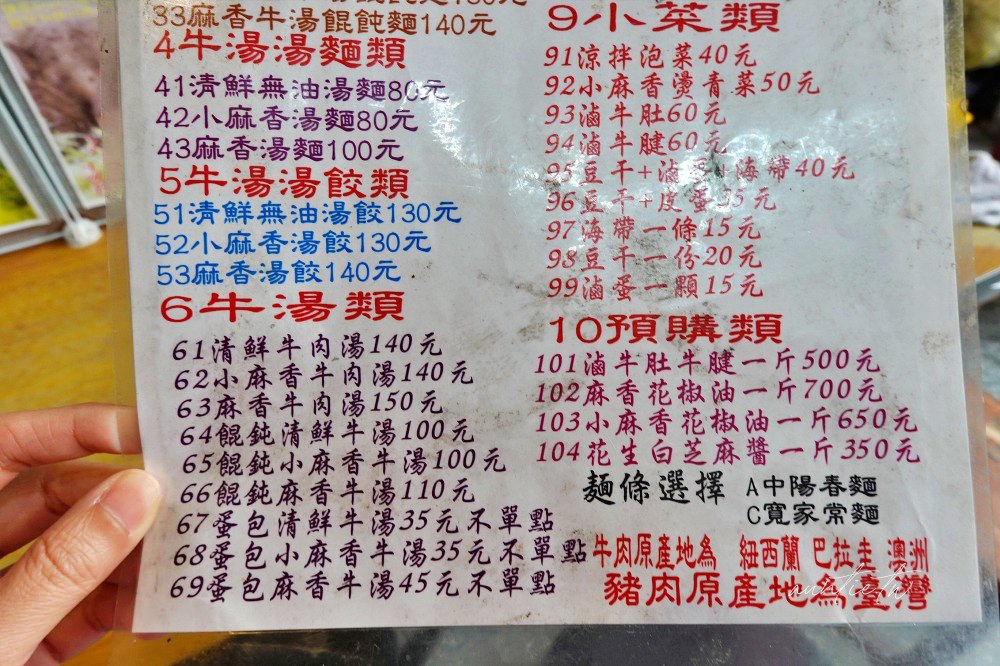 33麻香牛湯餛飩麵140元
4牛湯湯麵類
41清鮮無油湯麵80元
42小麻香湯麵80元
43麻香湯麵100元
5牛湯湯餃類
51清鮮無油湯餃130元
52小麻香湯餃130元
53麻香湯餃140元
6牛湯類
61清鮮牛肉湯140元
62小麻香牛肉湯140元
63麻香牛肉湯150元
64餛飩清鮮牛湯100元
65餛飩小麻香牛湯100元
66餛飩麻香牛湯110元
67蛋包清鮮牛湯35元不單點
68蛋包小麻香牛湯35元不單點
69蛋包麻香牛湯45元不單點
9小菜類
91涼拌泡菜40元
92小麻香燙青菜50元
93滷牛肚60元
94滷牛腱60元
95豆干+滷蛋+海帶40元
96豆干+皮蛋35元
97海帶一條15元
98豆干一份20元
99滷蛋一顆15元
10預購類
101滷牛肚牛腱一斤500元
102麻香花椒油一斤700元
103小麻香花椒油一斤650元
104花生白芝麻醬一斤350元
麵條選擇 A中陽春麵
C寬家常麵
牛肉原產地為 紐西蘭 巴拉圭 澳洲
豬肉原產地為臺灣